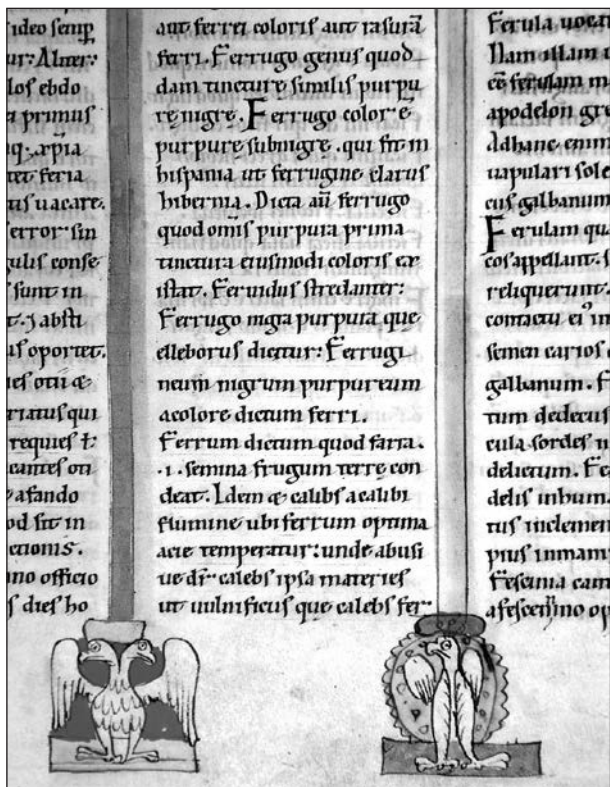 ideo semp
ur: Aliter:
los ebdo
primus
tet feria
us uacare.
error sin
gulis conse
sunt in
t. ⁊ absti
us oportet.
ies otii &
riatus qui
requies ł:
cantes oti
afando
od sit in
ctionis.
no officio
s dies ho
aut ferrei coloris aut rasurā
ferri. Ferrugo genus quod
dam tincture similis purpu
re nigre. Ferrugo color ē
purpure subnigre. qui fit in
hispania ut ferrugine clarus
hibernia. Dicta aū ferrugo
quod om̄is purpura prima
tinctura eiusmodi coloris ex
istat. Feruidus stredanter:
Ferrugo nigra purpura que
elleborus dicitur: Ferrugi
neum nigrum purpureum
acolore dictum ferri.
Ferrum dictum quod farra.
.i. semina frugum terre con
deat. Idem & calibs acalibi
flumine ubi ferrum optima
acie temperatur: unde abusi
ue dr̄ calebs ipsa materies
ut uulnificus que calebs fer
Ferula uoca
Nam illam u
eē ferulam m
apodelon gre
Adhanc enim
uapulari sole
cus galbanum
Ferulam qua
cos appellant. s
reliquerunt.
contactu ei' in
semen carios
galbanum. F
tum dedecus
cula sordes
delictum. Fe
delis inhum
tus inclemen
pius inmani
Fescinia carm
afescennino op